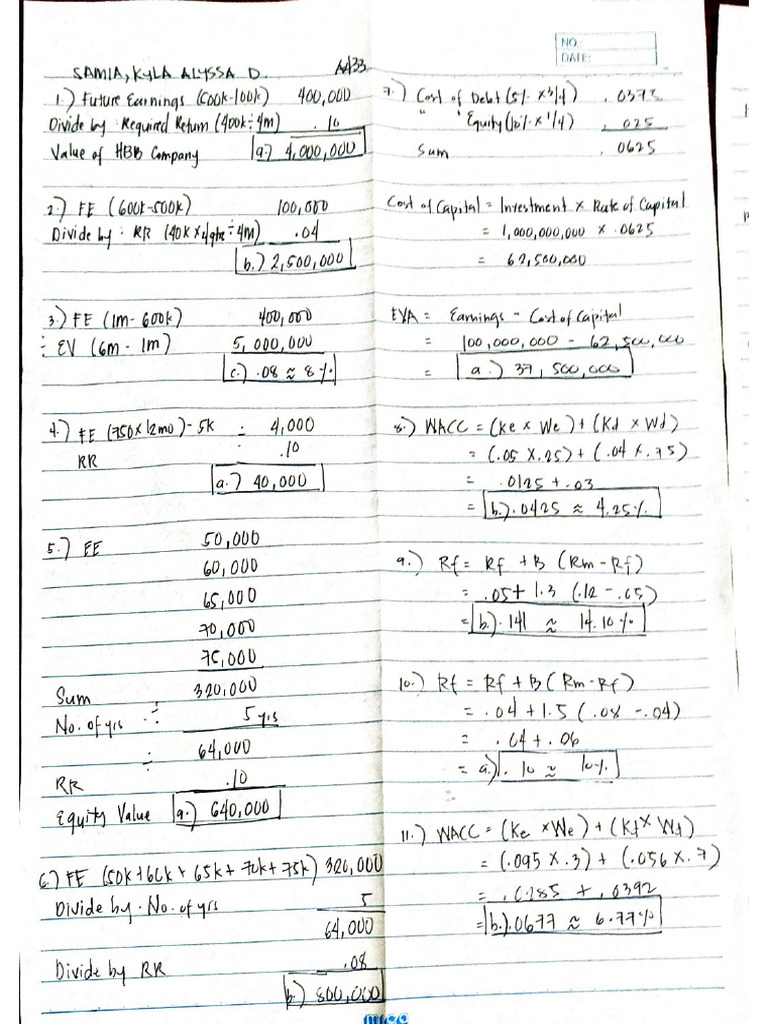 NO.:
DATE:
SAMIA, KYLA ALYSSA D. A433
1.) Future Earnings (500k-100k) 400,000
Divide by: Required Return (400k÷4m) .10
Value of HBB Company a.) 4,000,000
2.) FE (600k-500k) 100,000
Divide by: RR (40k x 4qtr ÷ 4m) .04
b.) 2,500,000
3.) FE (1m-600k) 400,000
÷ EV (6m - 1m) 5,000,000
c.) .08 ≈ 8%
4.) FE (750x12mo)-5k ÷ 4,000
RR .10
a.) 40,000
5.) FE 50,000
60,000
65,000
70,000
75,000
Sum 320,000
No. of yrs ÷ 5 yrs
÷ 64,000
RR .10
Equity Value a.) 640,000
6.) FE (50k+60k+65k+70k+75k) 320,000
Divide by. No. of yrs 5
64,000
Divide by RR .08
b.) 800,000
7.) Cost of Debt (5% x 3/4) .0375
" " Equity (10% x 1/4) .025
Sum .0625
Cost of Capital = Investment x Rate of Capital
= 1,000,000,000 x .0625
= 62,500,000
EVA = Earnings - Cost of Capital
= 100,000,000 - 62,500,000
= a.) 37,500,000
8.) WACC = (Ke x We) + (Kd x Wd)
= (.05 x .25) + (.04 x .75)
= .0125 + .03
= b.) .0425 ≈ 4.25%
9.) Rf = Rf + B (Rm - Rf)
= .05 + 1.3 (.12 - .05)
= b.) .141 ≈ 14.10%
10.) Rf = Rf + B (Rm - Rf)
= .04 + 1.5 (.08 - .04)
= .04 + .06
= a.) .10 ≈ 10%
11.) WACC = (Ke x We) + (Kd x Wd)
= (.095 x .3) + (.056 x .7)
= .0285 + .0392
= b.) .0677 ≈ 6.77%